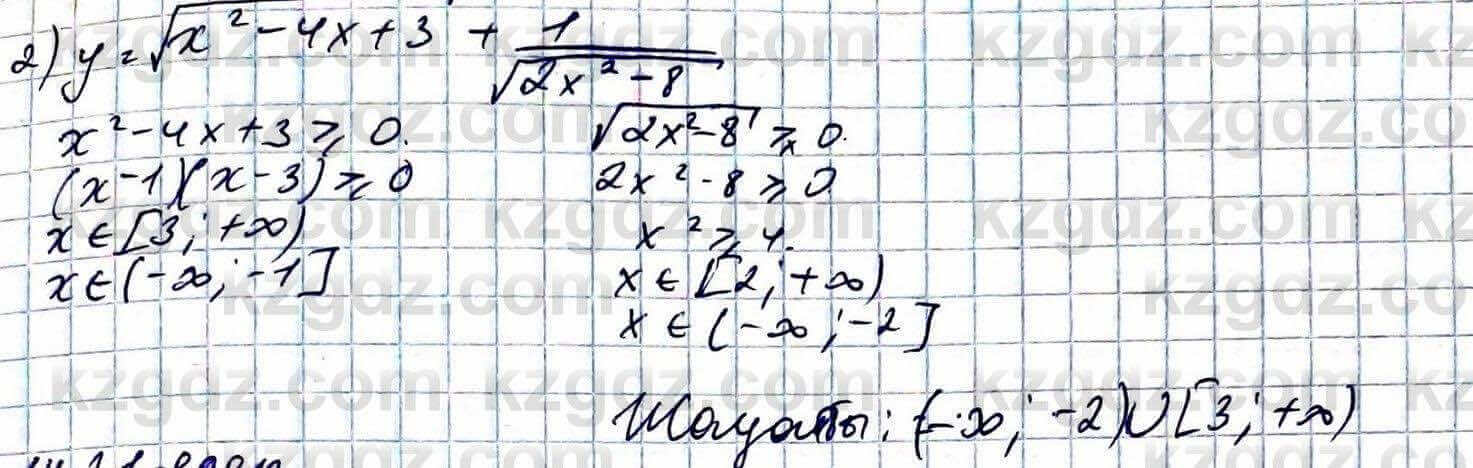 2) y = √(x² - 4x + 3) + 1/√(2x² - 8)
x² - 4x + 3 ⩾ 0. √(2x² - 8) ⩾ 0.
(x - 1)(x - 3) ⩾ 0 2x² - 8 ⩾ 0
x ∈ [3; +∞) x² ⩾ 4.
x ∈ (-∞; -1] x ∈ [2; +∞)
x ∈ (-∞; -2]
Жауабы: (-∞; -2) ∪ [3; +∞)
kzgdz.com